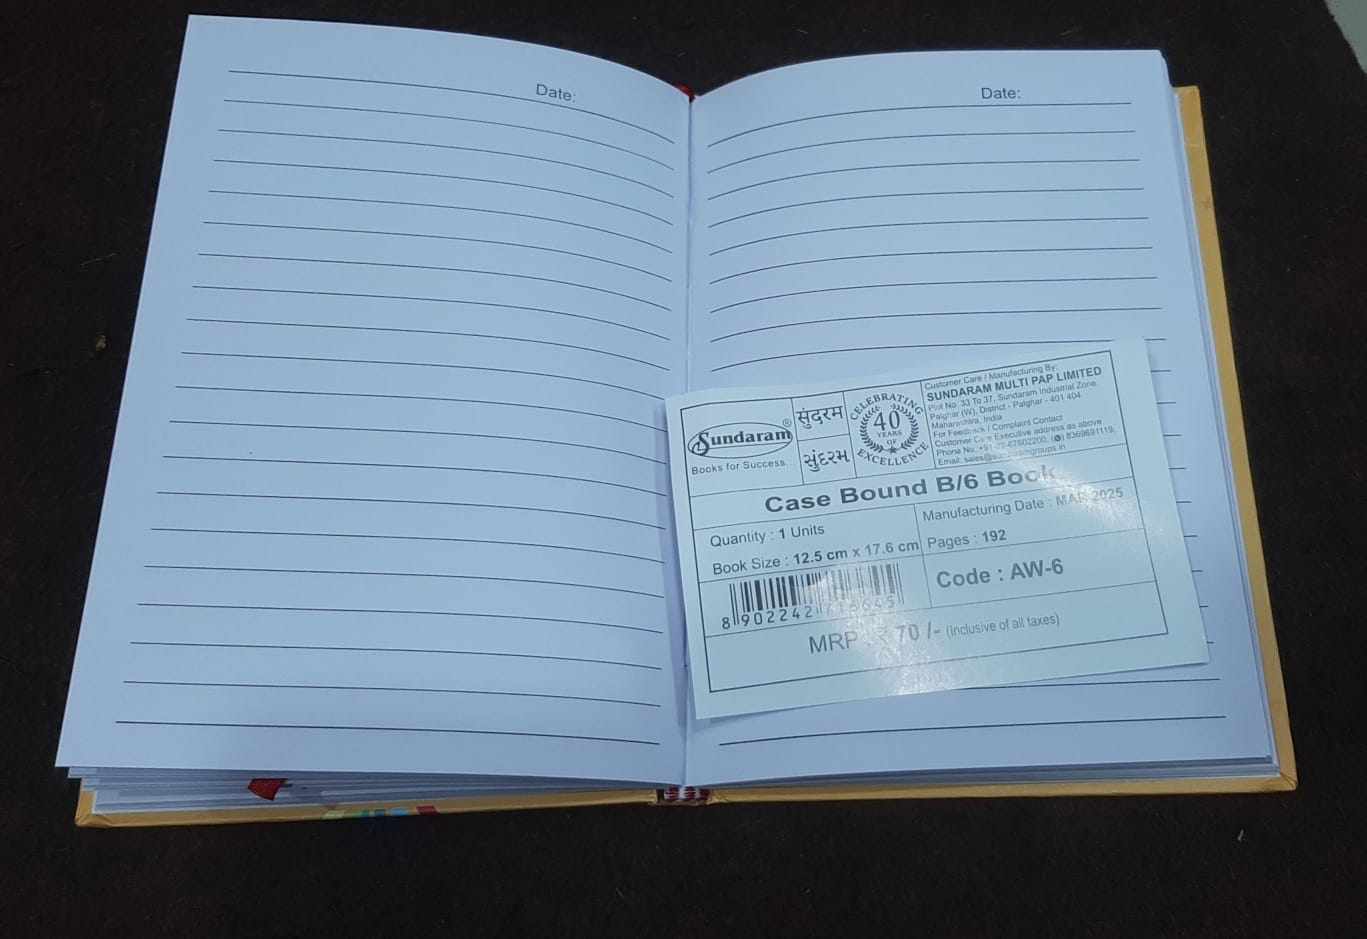 Date:
Date:
Sundaram®
Books for Success.
सुंदरम
સુંદરમ
CELEBRATING
40
YEARS
OF
EXCELLENCE
Customer Care / Manufacturing By:
SUNDARAM MULTI PAP LIMITED
Plot No. 33 To 37, Sundaram Industrial Zone,
Palghar (W), District - Palghar - 401 404
Maharashtra, India
For Feedback / Complaint Contact
Customer Care Executive address as above
Phone No.: 8369691119,
Email: sales@
Case Bound B/6 Book
Quantity : 1 Units
Manufacturing Date : MAR 2025
Book Size : 12.5 cm x 17.6 cm
Pages : 192
Code : AW-6
8 902242
MRP : ₹ 70 /- (Inclusive of all taxes)